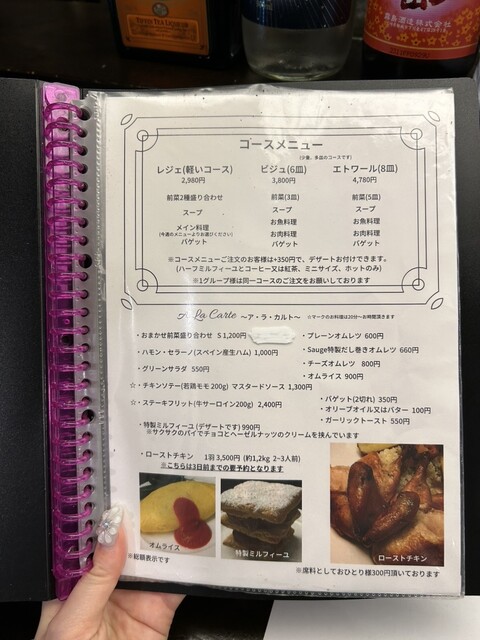 霧島酒造株式会社
コースメニュー
(少量、多皿のコースです)
レジェ(軽いコース)
2,980円
前菜2種盛り合わせ
スープ
メイン料理
(今週のメニューよりお選びください)
バゲット
ビジュ(6皿)
3,800円
前菜(3皿)
スープ
お魚料理
お肉料理
バゲット
エトワール(8皿)
4,780円
前菜(5皿)
スープ
お魚料理
お肉料理
バゲット
※コースメニューご注文のお客様は+350円で、デザートお付けできます。
(ハーフミルフィーユとコーヒー又は紅茶、ミニサイズ、ホットのみ)
※1グループ様は同一コースのご注文をお願いしております
A La Carte ～ア・ラ・カルト～ ☆マークのお料理は20分～お時間頂きます
・おまかせ前菜盛り合わせ S 1,200円
・ハモン・セラーノ(スペイン産生ハム) 1,000円
・グリーンサラダ 550円
・プレーンオムレツ 600円
・Sauge特製だし巻きオムレツ 660円
・チーズオムレツ 800円
・オムライス 900円
☆・チキンソテー(若鶏モモ200g) マスタードソース 1,300円
☆・ステーキフリット(牛サーロイン200g) 2,400円
・バゲット(2切れ) 350円
・オリーブオイル又はバター 100円
・ガーリックトースト 550円
・特製ミルフィーユ (デザートです) 990円
※サクサクのパイでチョコとヘーゼルナッツのクリームを挟んでいます
・ローストチキン 1羽 3,500円 (約1,2kg 2~3人前)
※こちらは3日前までの要予約となります
オムライス
特製ミルフィーユ
ローストチキン
※総額表示です
※席料としておひとり様300円頂いております